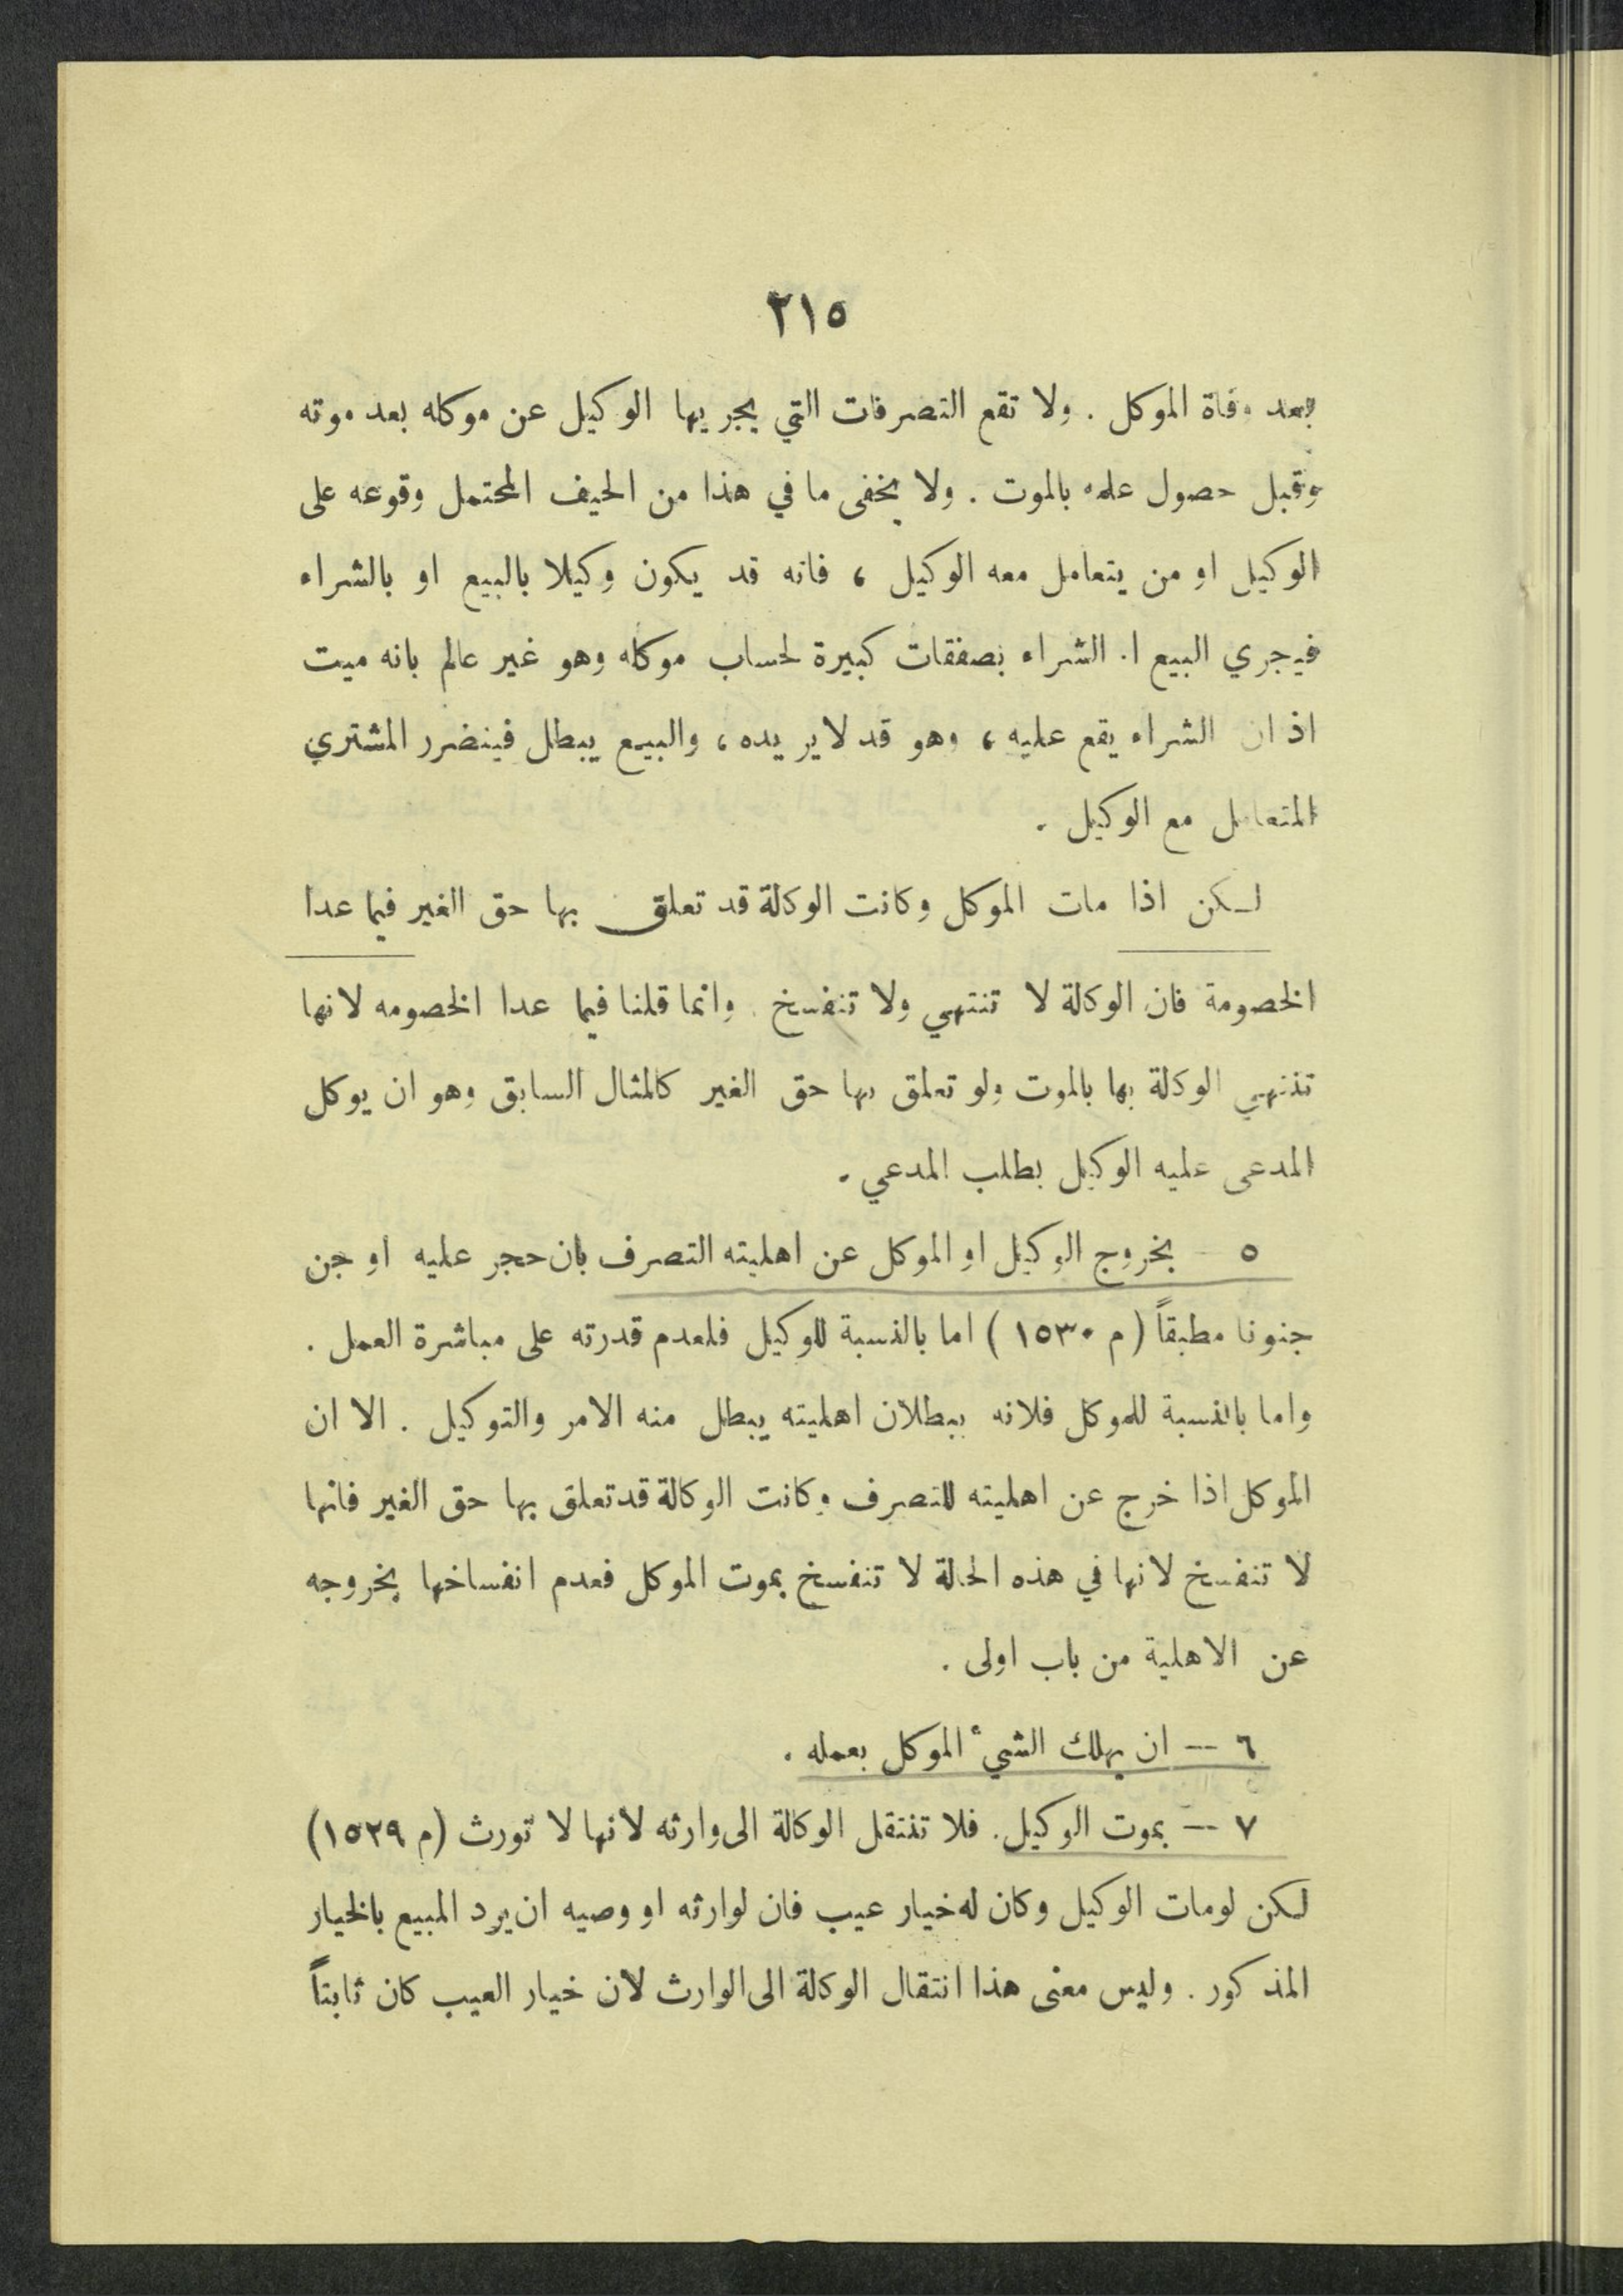 ٢١٥
بعد وفاة الموكل . ولا تقع التصرفات التي يجريها الوكيل عن موكله بعد موته
وقبل حصول علمه بالموت . ولا يخفى ما في هذا من الحيف المحتمل وقوعه على
الوكيل او من يتعامل معه الوكيل ، فانه قد يكون وكيلا بالبيع او بالشراء
فيجري البيع او الشراء بصفقات كبيرة لحساب موكله وهو غير عالم بانه ميت
اذ ان الشراء يقع عليه ، وهو قد لا يريده ، والبيع يبطل فيتضرر المشتري
المتعامل مع الوكيل .
لكن اذا مات الموكل وكانت الوكالة قد تعلق بها حق الغير فيما عدا
الخصومة فان الوكالة لا تنتهي ولا تنفسخ . وانما قلنا فيما عدا الخصومه لانها
تنتهي الوكالة بها بالموت ولو تعلق بها حق الغير كالمثال السابق وهو ان يوكل
المدعى عليه الوكيل بطلب المدعي .
٥ - بخروج الوكيل او الموكل عن اهليته التصرف بان حجر عليه او جن
جنونا مطبقاً (م ١٥٣٠) اما بالنسبة للوكيل فلعدم قدرته على مباشرة العمل .
واما بالنسبة للموكل فلانه ببطلان اهليته يبطل منه الامر والتوكيل . الا ان
الموكل اذا خرج عن اهليته للتصرف وكانت الوكالة قد تعلق بها حق الغير فانها
لا تنفسخ لانها في هذه الحالة لا تنفسخ بموت الموكل فعدم انفساخها بخروجه
عن الاهلية من باب اولى .
٦ -- ان يهلك الشيء الموكل بعمله .
٧ -- بموت الوكيل . فلا تنتقل الوكالة الى وارثه لانها لا تورث (م ١٥٢٩)
لكن لو مات الوكيل وكان له خيار عيب فان لوارثه او وصيه ان يرد المبيع بالخيار
المذكور . وليس معنى هذا انتقال الوكالة الى الوارث لان خيار العيب كان ثابتاً